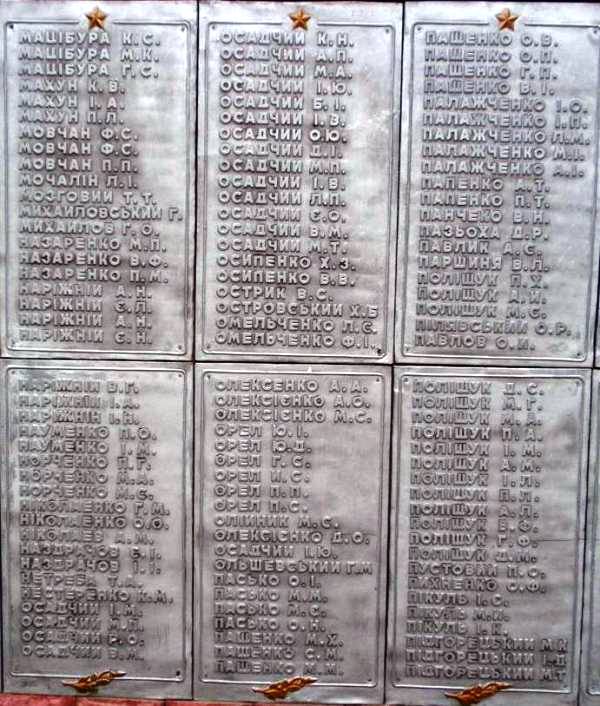 МАЦІБУРА К.С.
МАЦІБУРА М.К.
МАЦІБУРА Г.С.
МАХУН К.В.
МАХУН І.А.
МАХУН П.Л.
МОВЧАН Ф.С.
МОВЧАН Ф.С.
МОВЧАН П.П.
МОЧАЛІН Л.І.
МОЗГОВИЙ Т.Т.
МИХАЙЛОВСЬКИЙ Г.
МИХАЙЛОВ Г.О.
НАЗАРЕНКО М.П.
НАЗАРЕНКО В.Ф.
НАЗАРЕНКО П.М.
НАРІЖНІЙ А.Н.
НАРІЖНІЙ Є.Л.
НАРІЖНІЙ А.Н.
НАРІЖНІЙ Є.Н.
НАРІЖНІЙ В.Г.
НАРІЖНІЙ І.А.
НАРІЖНІЙ І.Н.
НАУМЕНКО П.О.
НАУМЕНКО І.К.
НОРЧЕНКО П.Г.
НОРЧЕНКО М.А.
НОРЧЕНКО М.Є.
НІКОЛАЕНКО Г.М.
НІКОЛАЕНКО О.О.
НІКОЛАЕВ А.М.
НАЗДРАЧОВ Б.І.
НАЗДРАЧОВ І.І.
НЕТРЕБА Т.А.
НЕСТЕРЕНКО К.М.
ОСАДЧИЙ І.М.
ОСАДЧИЙ М.П.
ОСАДЧИЙ Р.О.
ОСАДЧИЙ В.М.
ОСАДЧИЙ К.Н.
ОСАДЧИЙ А.П.
ОСАДЧИЙ М.А.
ОСАДЧИЙ І.Ю.
ОСАДЧИЙ Б.І.
ОСАДЧИЙ І.В.
ОСАДЧИЙ О.Ю.
ОСАДЧИЙ Д.І.
ОСАДЧИЙ М.П.
ОСАДЧИЙ І.В.
ОСАДЧИЙ Л.П.
ОСАДЧИЙ Є.О.
ОСАДЧИЙ В.М.
ОСАДЧИЙ М.Т.
ОСИПЕНКО Х.З.
ОСИПЕНКО В.В.
ОСТРИК В.С.
ОСТРОВСЬКИЙ Х.Б
ОМЕЛЬЧЕНКО Л.Є.
ОМЕЛЬЧЕНКО Ф.І.
ОЛЕКСЕНКО А.А.
ОЛЕКСІЄНКО А.О.
ОЛЕКСІЄНКО М.С.
ОРЕЛ Ю.І.
ОРЕЛ Ю.Д.
ОРЕЛ Г.С.
ОРЕЛ И.С.
ОРЕЛ П.П.
ОРЕЛ П.С.
ОЛІЙНИК М.С.
ОЛЕКСІЄНКО Д.О.
ОСАДЧИЙ І.Ю.
ОЛЬШЕВСЬКИЙ Г.М
ПАСЬКО О.І.
ПАСЬКО М.М.
ПАСЬКО М.Є.
ПАСЬКО О.Н.
ПАЩЕНКО М.Х.
ПАЩЕНКО С.М.
ПАЩЕНКО М.М.
ПАЩЕНКО О.В.
ПАЩЕНКО О.П.
ПАЩЕНКО Г.П.
ПАЩЕНКО В.І.
ПАЛАЖЧЕНКО І.О.
ПАЛАЖЧЕНКО І.П.
ПАЛАЖЧЕНКО Л.М.
ПАЛАЖЧЕНКО М.І.
ПАЛАЖЧЕНКО А.І.
ПАПЕНКО А.Т.
ПАПЕНКО П.Т.
ПАНЧЕКО В.Н.
ПАЗЬОХА Д.Р.
ПАВЛИК А.С.
ПАРШИНЯ В.Л.
ПОЛІЩУК П.Х.
ПОЛІЩУК А.И.
ПОЛІЩУК М.Є.
ПІЛЯВСЬКИЙ О.Р.
ПАВЛОВ О.И.
ПОЛІЩУК Д.С.
ПОЛІЩУК М.Г.
ПОЛІЩУК М.А.
ПОЛІЩУК П.А.
ПОЛІЩУК І.М.
ПОЛІЩУК А.М.
ПОЛІЩУК І.Л.
ПОЛІЩУК П.Л.
ПОЛІЩУК А.Л.
ПОЛІЩУК В.Ф.
ПОЛІЩУК Г.Ф.
ПОЛІЩУК Д.М.
ПУСТОВИЙ П.Є.
ПИХНЕНКО О.Ф.
ПІКУЛЬ І.С.
ПІКУЛЬ М.И.
ПІКУЛЬ І.К.
ПІДГОРЕЦЬКИЙ М.К
ПІДГОРЕЦЬКИЙ І.Д
ПІДГОРЕЦЬКИЙ М.Т